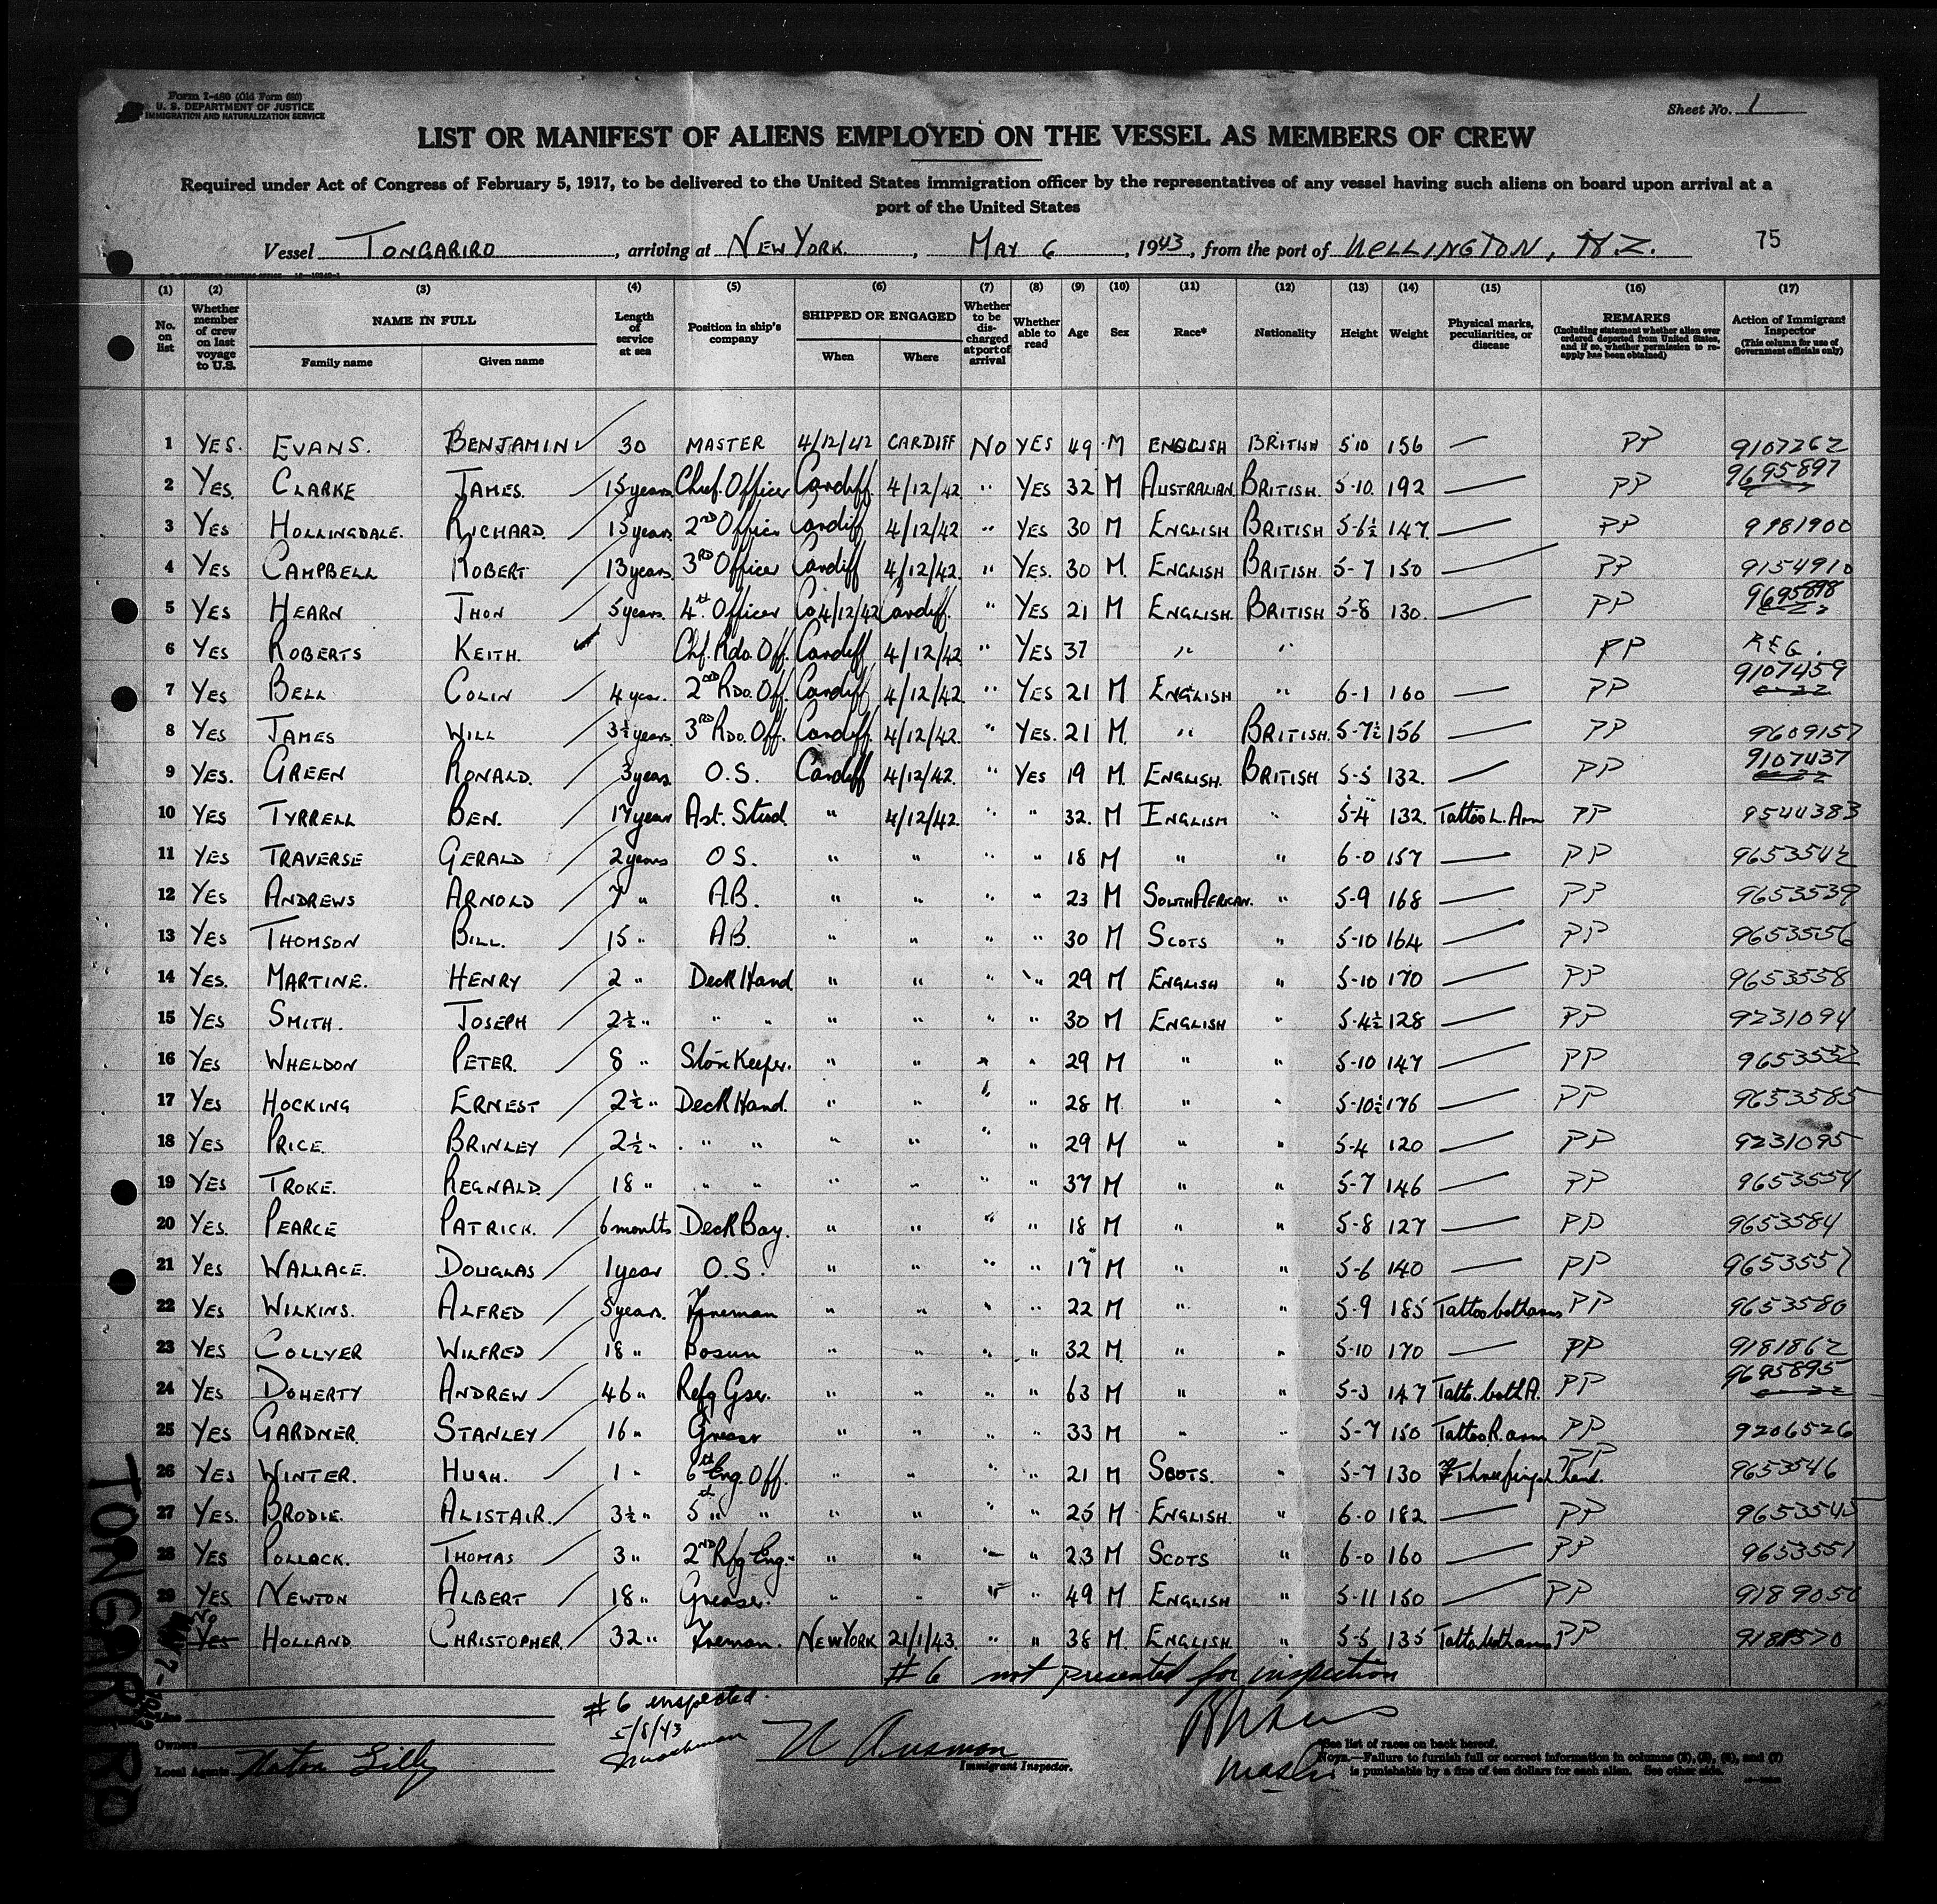 Form I-480 (Old Form 680)
U. S. DEPARTMENT OF JUSTICE
IMMIGRATION AND NATURALIZATION SERVICE
Sheet No. 1
LIST OR MANIFEST OF ALIENS EMPLOYED ON THE VESSEL AS MEMBERS OF CREW
Required under Act of Congress of February 5, 1917, to be delivered to the United States immigration officer by the representatives of any vessel having such aliens on board upon arrival at a
port of the United States
Vessel TONGARIRO, arriving at NEW YORK, MAY 6, 1943, from the port of WELLINGTON, N.Z. 75
(1) (2) (3) (4) (5) (6) (7) (8) (9) (10) (11) (12) (13) (14) (15) (16) (17)
No. on list Whether member of crew on last voyage to U.S. NAME IN FULL Family name Given name Length of service at sea Position in ship's company SHIPPED OR ENGAGED When Where Whether to be discharged at port of arrival Whether able to read Age Sex Race* Nationality Height Weight Physical marks, peculiarities, or disease REMARKS (Including statement whether alien ever ordered deported from United States, and if so, whether permission to re-apply has been obtained) Action of Immigrant Inspector (This column for use of Government officials only)
1 YES. EVANS. BENJAMIN 30 MASTER 4/12/42 CARDIFF NO YES 49 M ENGLISH BRITISH 5 10 156 — PP 9107262
2 YES. CLARKE JAMES. 15 years Chief. Officer Cardiff. 4/12/42 " YES 32 M AUSTRALIAN. BRITISH. 5-10. 192 — PP 9695897
3 YES HOLLINGDALE. RICHARD. 15 years 2ND Officer Cardiff 4/12/42 " YES 30 M ENGLISH BRITISH 5-6½ 147. — PP 9181900
4 YES CAMPBELL ROBERT 13 years. 3RD Officer Cardiff 4/12/42. " YES. 30 M. ENGLISH BRITISH. 5-7 150 — PP 9154910
5 YES HEARN JHON 5 years. 4th Officer 4/12/42 Cardiff. " YES 21 M ENGLISH. BRITISH 5-8 130. — PP 9695898
6 YES ROBERTS KEITH. Chf. Rdo. Off. Cardiff 4/12/42 " YES 37 " " PP REG.
7 YES BELL COLIN 4 year. 2ND RDO. Off. Cardiff 4/12/42. " YES 21 M ENGLISH " 6-1 160 — PP 9107459
8 YES JAMES WILL 3½ years. 3RD RDO. Off. Cardiff. 4/12/42. " YES. 21 M. " BRITISH. 5-7½ 156 — PP 9609157
9 YES. GREEN RONALD. 3 years O.S. Cardiff 4/12/42. " YES 19 M. ENGLISH. BRITISH 5-5 132. — PP 9107437
10 YES TYRRELL BEN. 17 year Ast. Stwd. " 4/12/42. " " 32. M ENGLISH " 5-4 132. Tattoo L. Arm PP 9544383
11 YES TRAVERSE GERALD 2 years O.S. " " " " 18 M " " 6-0 157 — PP 9653542
12 YES ANDREWS ARNOLD 7 " A.B. " " " " 23 M SOUTH AFRICAN. " 5-9 168 — PP 9653539
13 YES THOMSON BILL. 15 " A.B. " " " " 30 M SCOTS " 5-10 164 — PP 9653556
14 YES. MARTINE. HENRY 2 " Deck Hand. " " " " 29 M ENGLISH " 5-10 170 — PP 9653558
15 YES SMITH. JOSEPH 2½ " " " " " " " 30 M ENGLISH " 5-4½ 128 — PP 9231094
16 YES WHELDON PETER. 8 " Store Keeper. " " " " 29 M " " 5-10 147 — PP 9653552
17 YES HOCKING ERNEST 2½ " Deck Hand. " " " " 28 M. " " 5-10½ 176 — PP 9653585
18 YES PRICE. BRINLEY 2½ " " " " " " " 29 M " " 5-4 120 — PP 9231095
19 YES TROKE. REGNALD. 18 " " " " " " " 37 M " " 5-7 146 — PP 9653554
20 YES. PEARCE PATRICK. 6 months Deck Boy. " " " " 18 M " " 5-8 127 — PP 9653584
21 YES WALLACE. DOUGLAS 1 year O.S. " " " " 17 M " " 5-6 140 — PP 9653557
22 YES WILKINS. ALFRED 5 years. Fireman " " " " 22 M " " 5-9 185 Tattoo both arms PP 9653580
23 YES COLLYER WILFRED 18 " Bosun " " " " 32 M. " " 5-10 170 — PP 9181862
24 YES DOHERTY ANDREW 46 " Refg Gsr. " " " " 63 M " " 5-3 147 Tatto. both A. PP 9695895
25 YES GARDNER. STANLEY 16 " Greaser " " " " 33 M " " 5-7 150 Tattoo R. arm PP 9206526
26 YES WINTER. HUGH. 1 " 6th Eng. Off. " " " " 21 M SCOTS. " 5-7 130 PP 9653546
27 YES. BRODIE. ALISTAIR. 3½ " 5th " " " " " " 25 M ENGLISH. " 6-0 182. — PP 9653545
28 YES POLLACK. THOMAS 3 " 2ND Rfg Eng. " " " " 23 M SCOTS " 6-0 160 — PP 9653551
29 YES. NEWTON ALBERT 18 " Greaser. " " " " 49 M ENGLISH " 5-11 150 — PP 9189050
No Yes HOLLAND CHRISTOPHER. 32 " Fireman. NEW YORK 21/1/43. " " 38 M. ENGLISH. " 5-5 135 Tatto both arms PP
#6 not presented for inspection
#6 inspected.
5/8/43
Line
Owners
Local Agents Norton Lilly
Immigrant Inspector.
Master
*See list of races on back hereof.
NOTE.—Failure to furnish full or correct information in columns (3), (5), (6), and (7)
is punishable by a fine of ten dollars for each alien. See other side.
TONGARIRO
MAY 7-1943